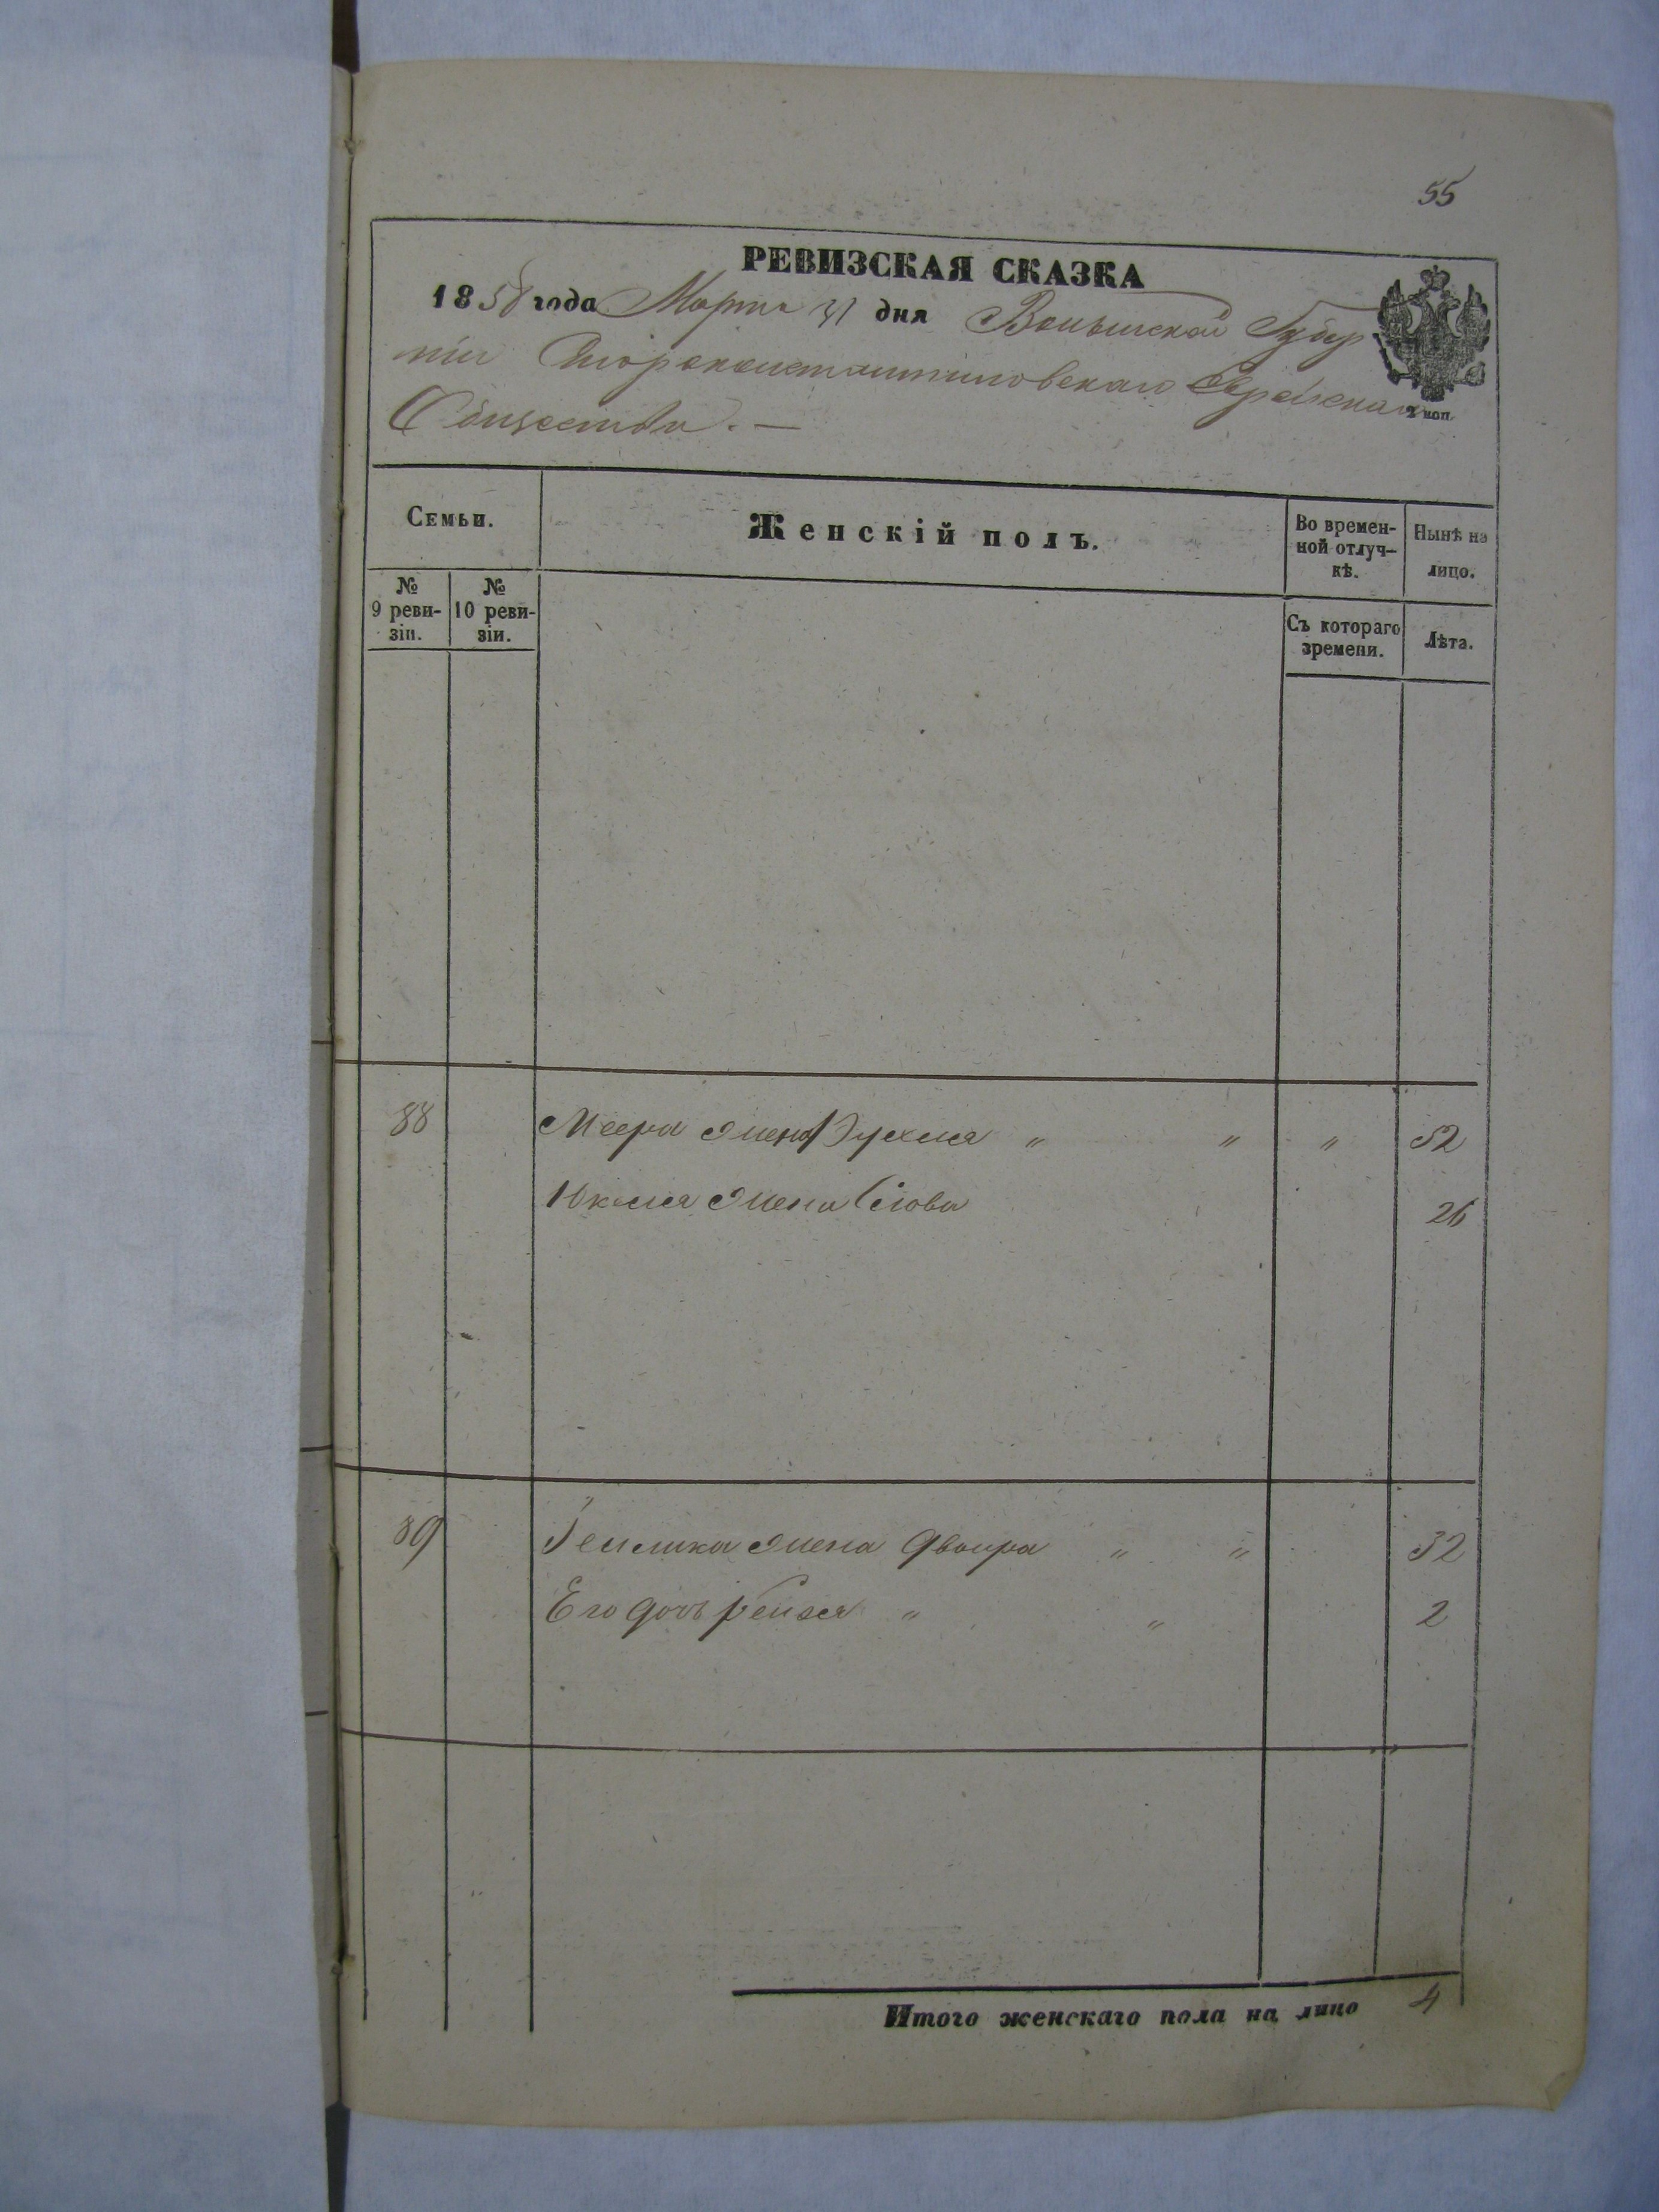 55
РЕВИЗСКАЯ СКАЗКА
1858 года Марта 31 дня Волынской Губер
ніи Староконстантиновскаго Еврейскаго
Общества. —
2 коп.
Семьи.
Женскій полъ.
Во времен-
ной отлуч-
кѣ.
Нынѣ на
лицо.
№
9 реви-
зіи.
№
10 реви-
зіи.
Съ котораго
времени.
Лѣта.
88 Меера жена Рухля " " " 52
Юкеля жена Слова 26
89 жена Двойра " " 32
Его дочь Рейзя " " 2
Итого женскаго пола на лицо 4